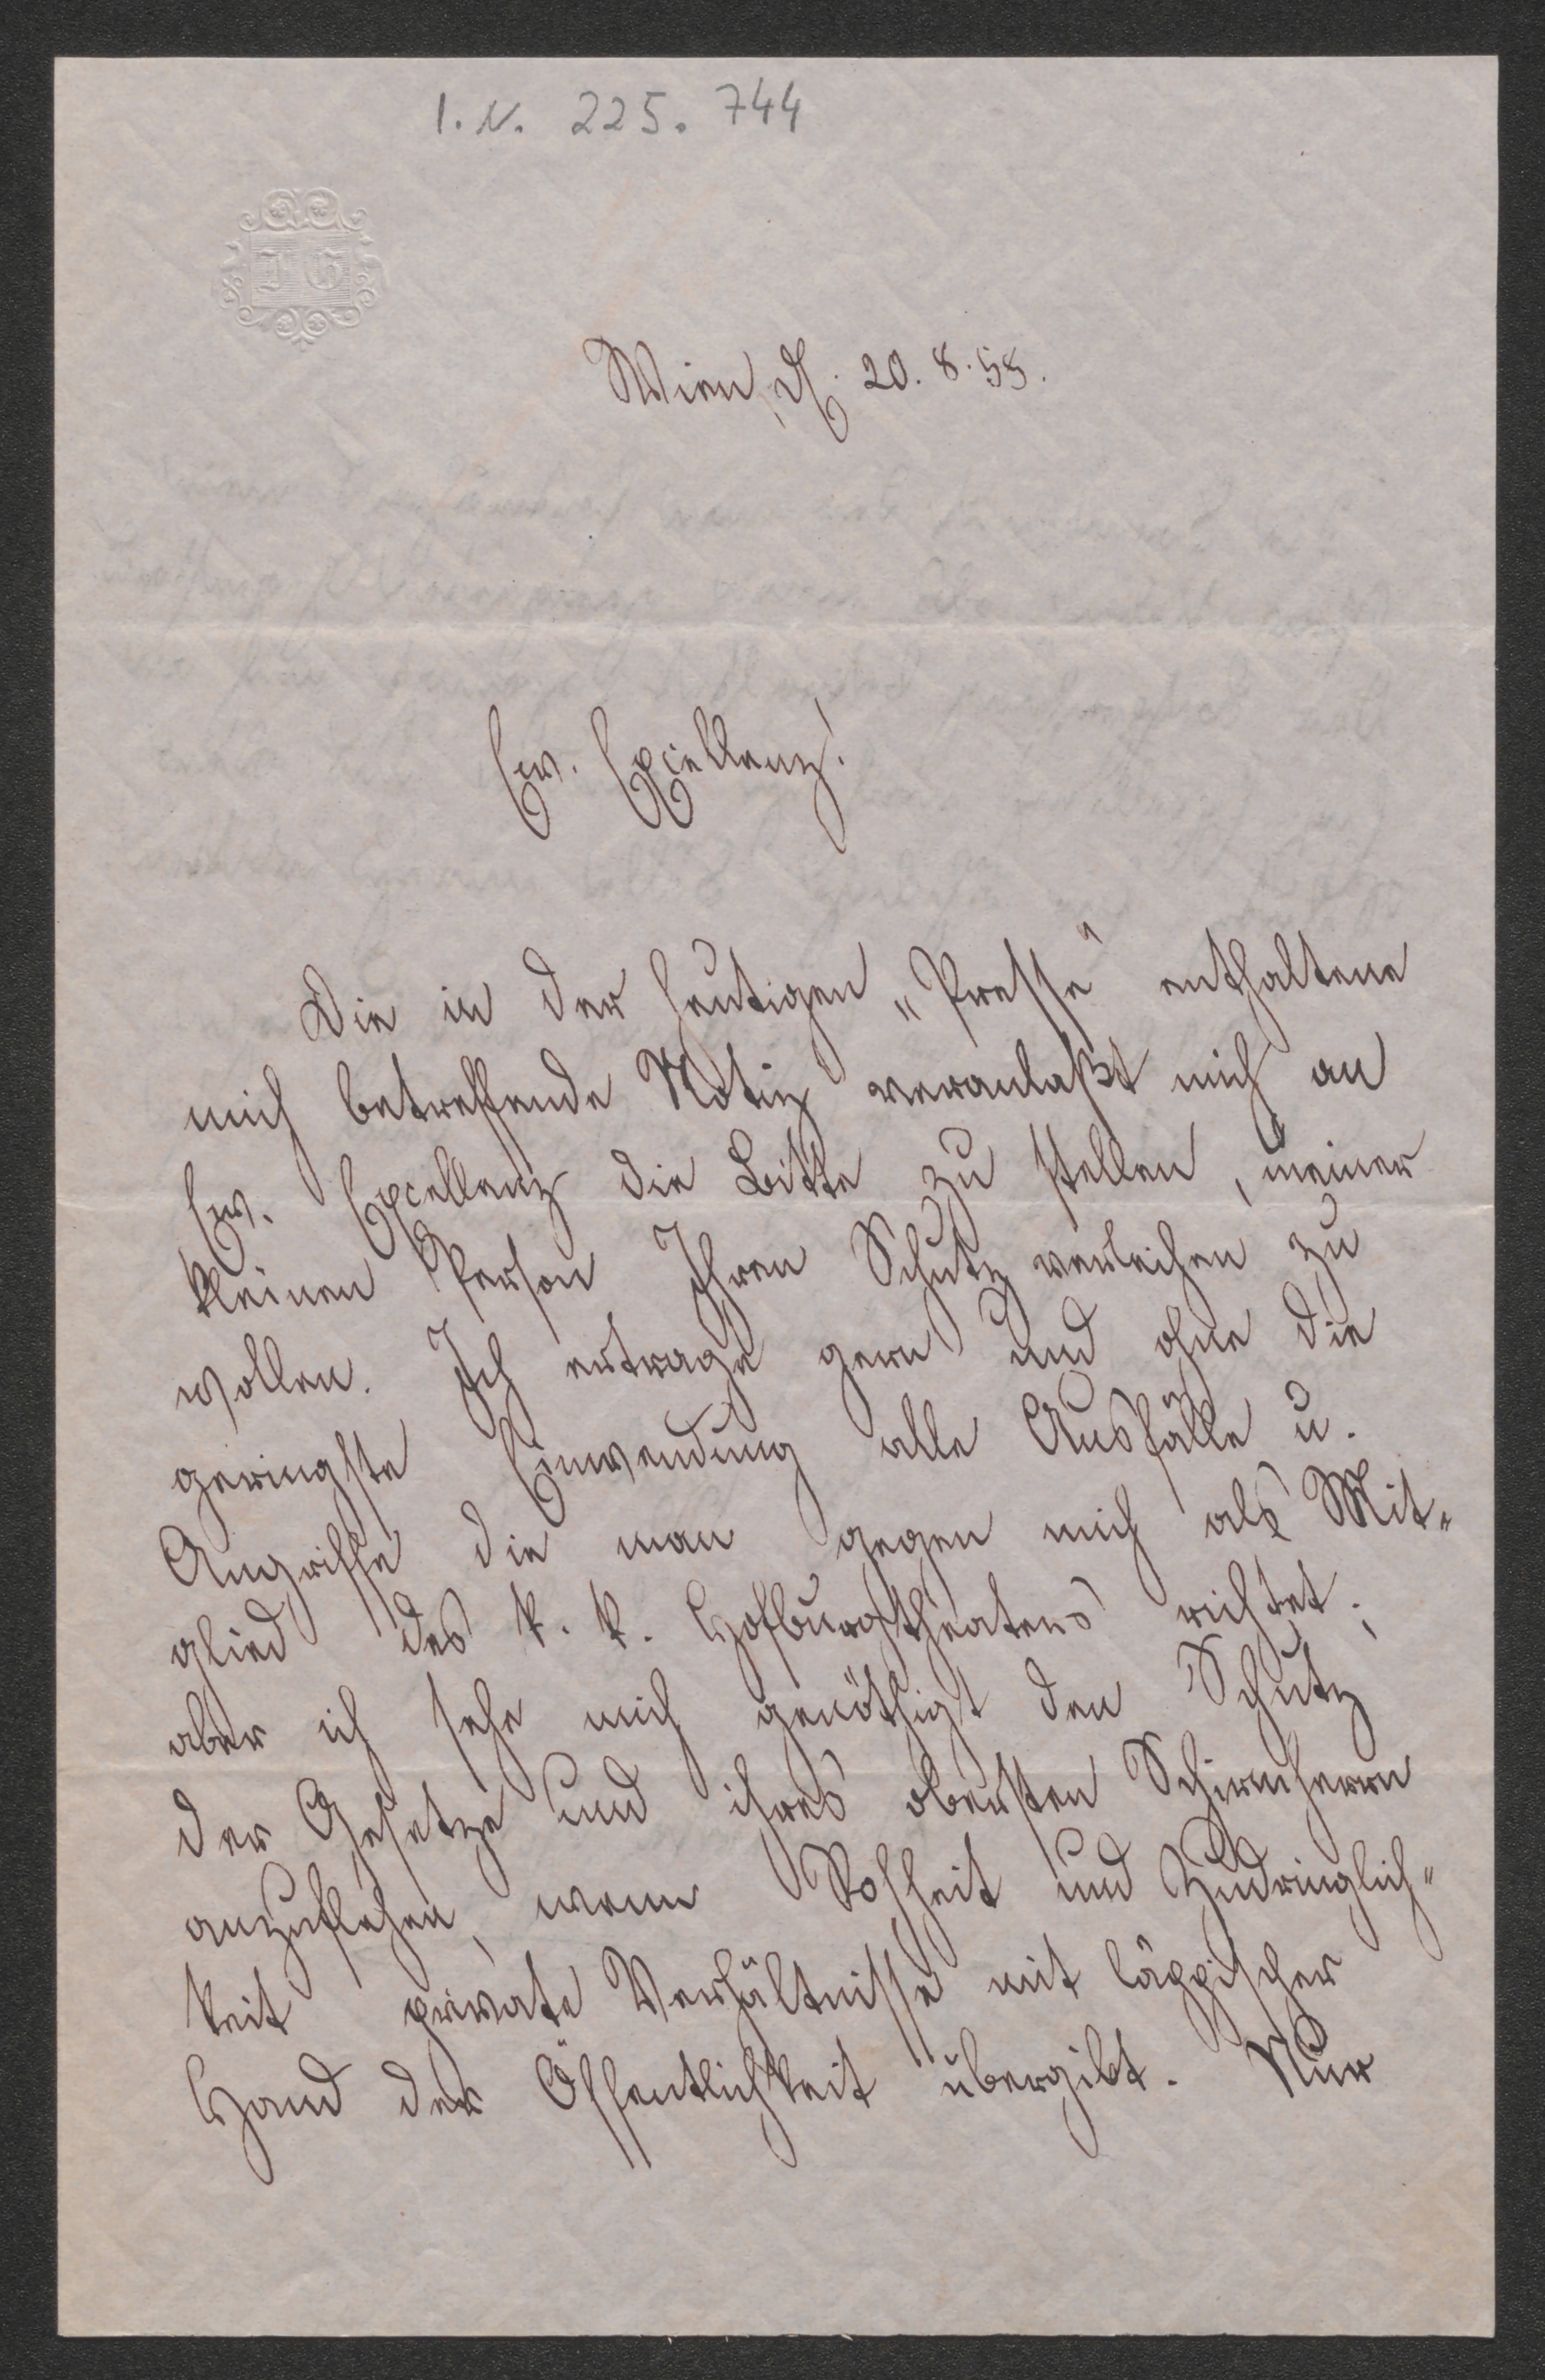 I.N. 225.744
IG
Wien, d. 20.8.58.
Ew. Excellenz!
Die in der heutigen „Presse" enthaltene
mich betreffende Notiz veranlaßt mich an
Ew. Excellenz die Bitte zu stellen, meiner
kleinen Person Ihren Schutz verleihen zu
wollen. Ich ertrage gern und ohne die
geringste Einwendung alle Ausfälle u.
Angriffe die man gegen mich als Mit-
glied des k. k. Hofburgtheaters richtet;
aber ich sehe mich genöthigt den Schutz
der Gesetze und ihres obersten Schirmherrn
anzuflehen, wenn Rohheit und Zudringlich-
keit private Verhältnisse mit läppischer
Hand der Öffentlichkeit übergibt. Nur